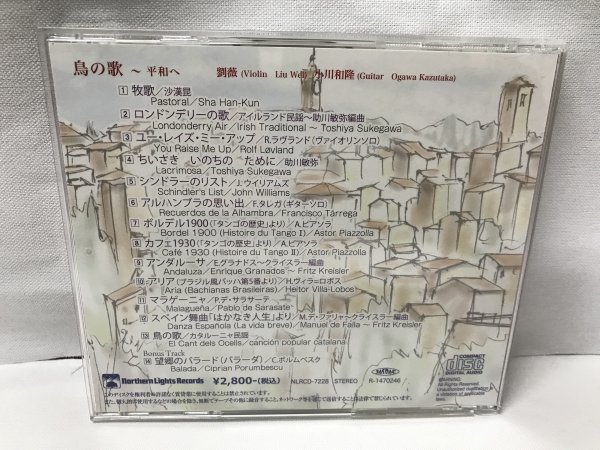 鳥の歌 ～ 平和へ 劉薇 (Violin Liu Wei) 小川和隆 (Guitar Ogawa Kazutaka)
1 牧歌／沙漢昆
Pastoral／Sha Han-Kun
2 ロンドンデリーの歌／アイルランド民謡～助川敏弥編曲
Londonderry Air／Irish Traditional ～ Toshiya Sukegawa
3 ユー・レイズ・ミー・アップ／R.ラヴランド(ヴァイオリンソロ)
You Raise Me Up／Rolf Løvland
4 ちいさき いのちの ために／助川敏弥
Lacrimosa／Toshiya Sukegawa
5 シンドラーのリスト／J.ウイリアムズ
Schindler's List／John Williams
6 アルハンブラの思い出／F.タレガ(ギターソロ)
Recuerdos de la Alhambra／Francisco Tárrega
7 ボルデル1900(「タンゴの歴史」より)／A.ピアソラ
Bordel 1900 (Histoire du Tango I)／Astor Piazzolla
8 カフェ1930(「タンゴの歴史」より)／A.ピアソラ
Café 1930 (Histoire du Tango II)／Astor Piazzolla
9 アンダルーサ／E.グラナドス～クライスラー編曲
Andaluza／Enrique Granados ～ Fritz Kreisler
10 アリア(ブラジル風バッハ第5番より)／H.ヴィラ=ロボス
Aria (Bachianas Brasileiras)／Heitor Villa-Lobos
11 マラゲーニャ／P.デ・サラサーテ
Malagueña／Pablo de Sarasate
12 スペイン舞曲「はかなき人生」より／M.デ・ファリャ～クライスラー編曲
Danza Española (La vida breve)／Manuel de Falla ～ Fritz Kreisler
13 鳥の歌／カタルーニャ民謡
El Cant dels Ocells／canción popular catalana
Bonus Track
14 望郷のバラード(バラーダ)／C.ポルムベスク
Balada／Ciprian Porumbescu
Northern Lights Records ¥2,800(税込) NLRCD-7228 STEREO R-1470246
COMPACT
disc
DIGITAL AUDIO
WARNING:
All Rights Reserved.
Unauthorized duplication is
a violation of applicable
laws.